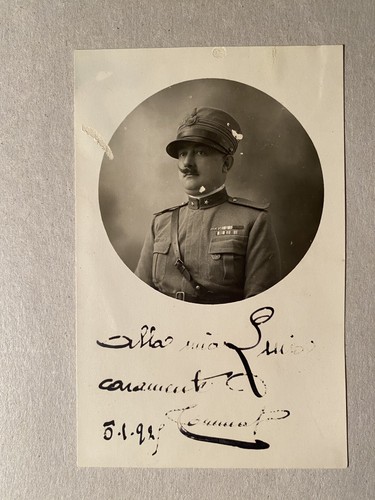 alla mia Luisa
caramente
5.1.929